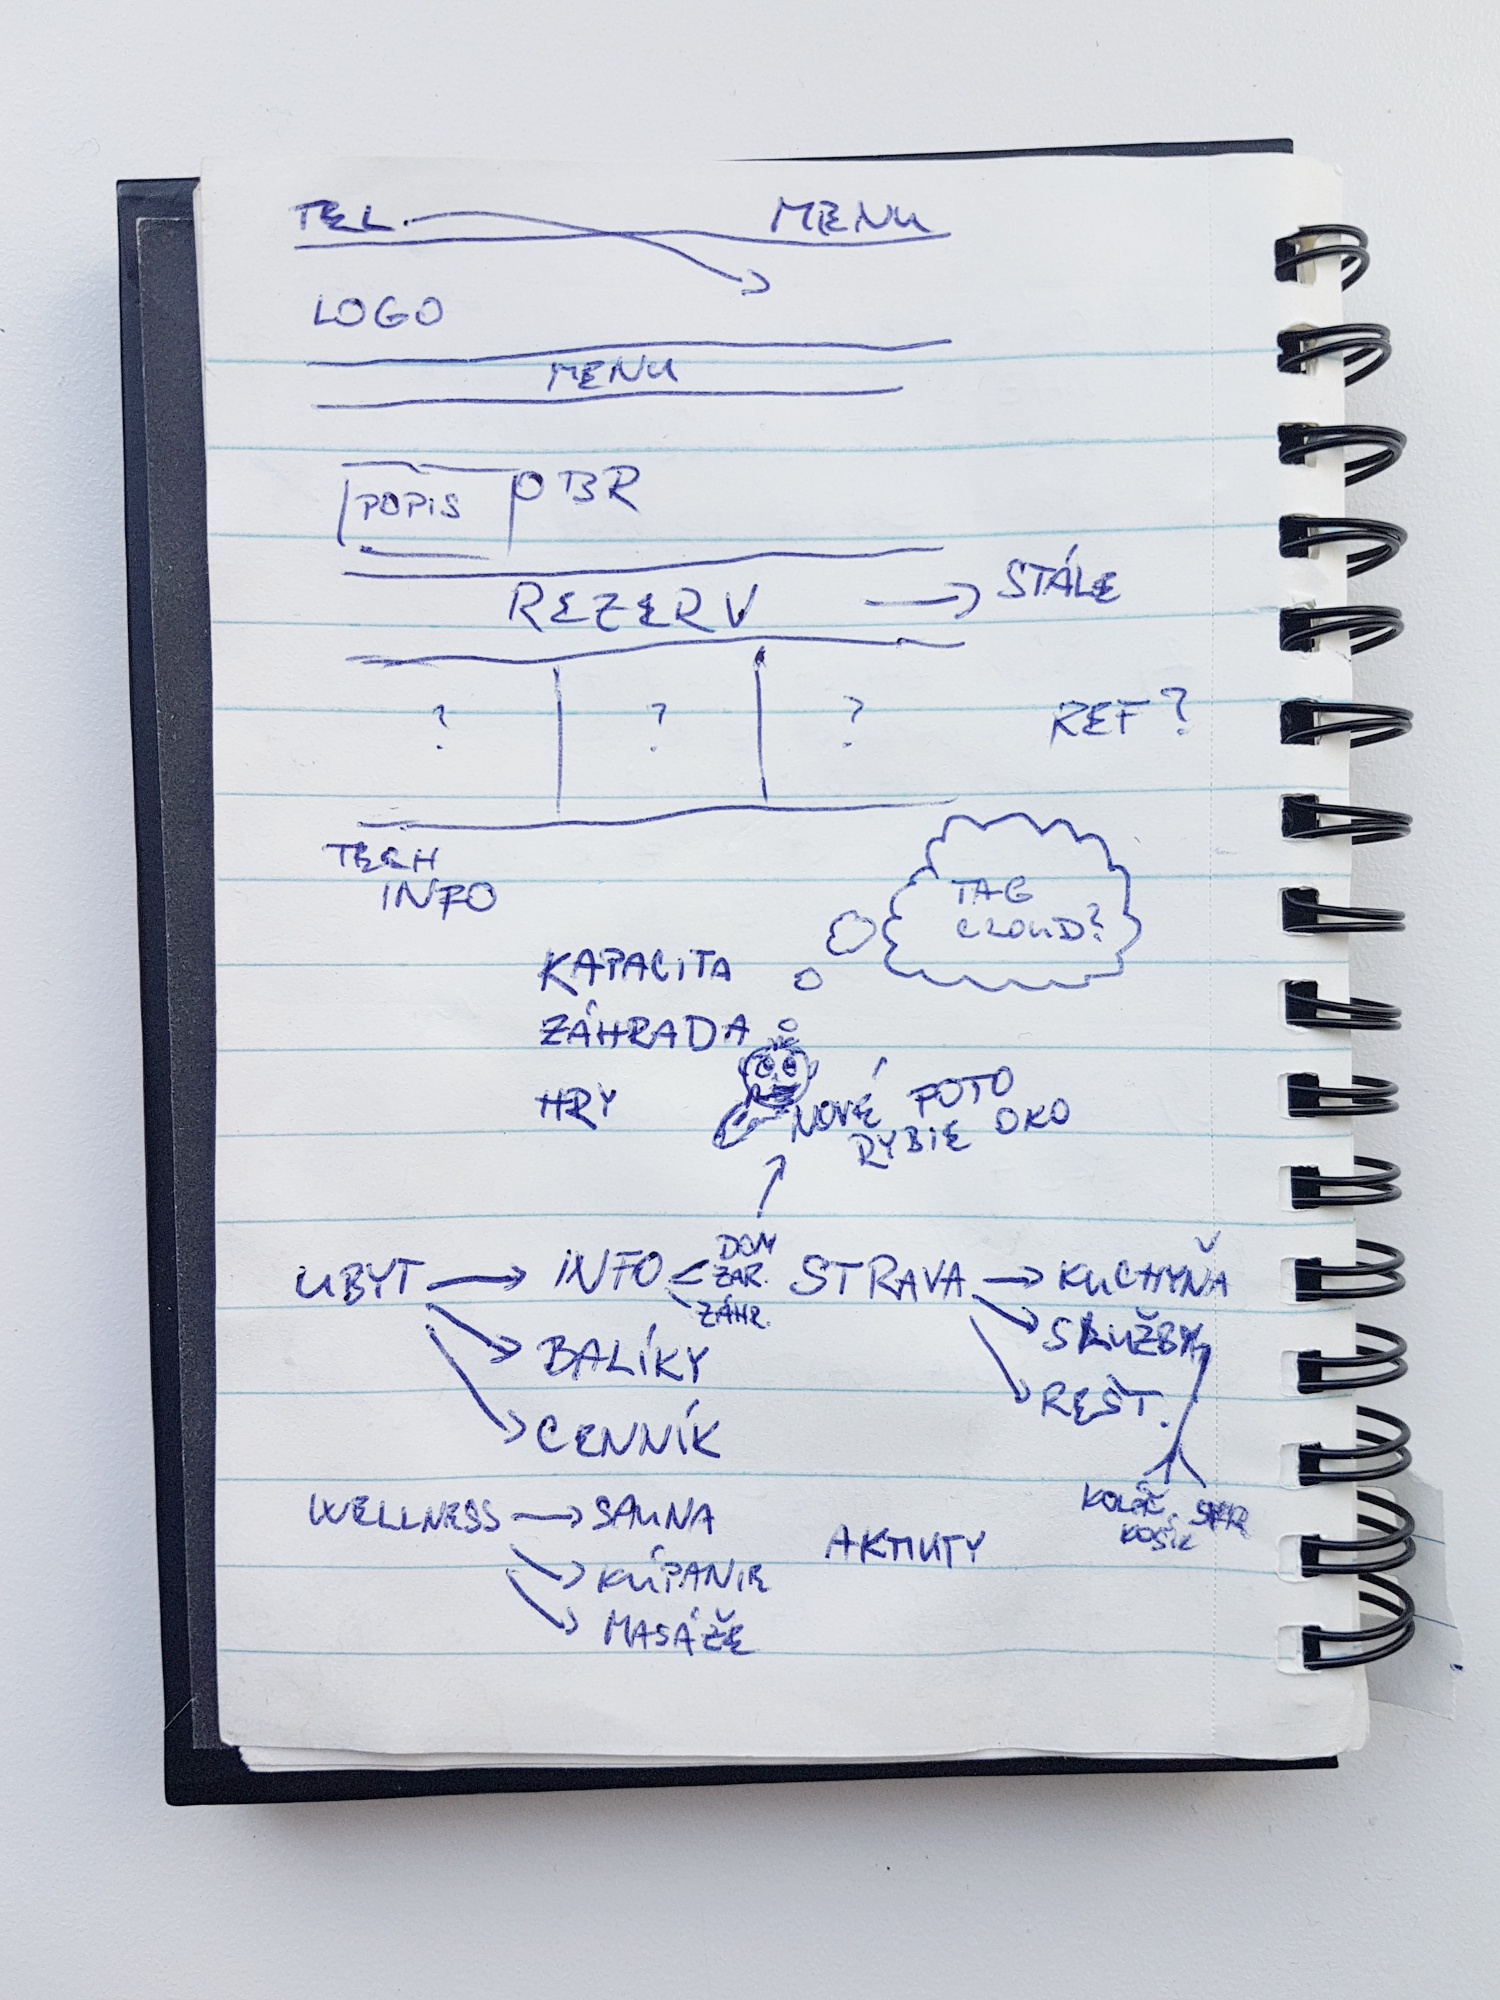 TEL. MENU
LOGO
MENU
POPIS OBR
REZERV STÁLE
? ? ? REF?
TECH
INFO
TAG
CLOUD?
KAPACITA
ZÁHRADA
HRY
NOVÉ FOTO
RYBIE OKO
UBYT INFO DOM
ZAR.
ZÁHR.
BALÍKY
CENNÍK
STRAVA KUCHYŇA
SLUŽBY
REŠT.
KOLÁČ
KOŠÍK
WELLNESS SAUNA
KÚPANIE
MASÁŽE
AKTIVITY